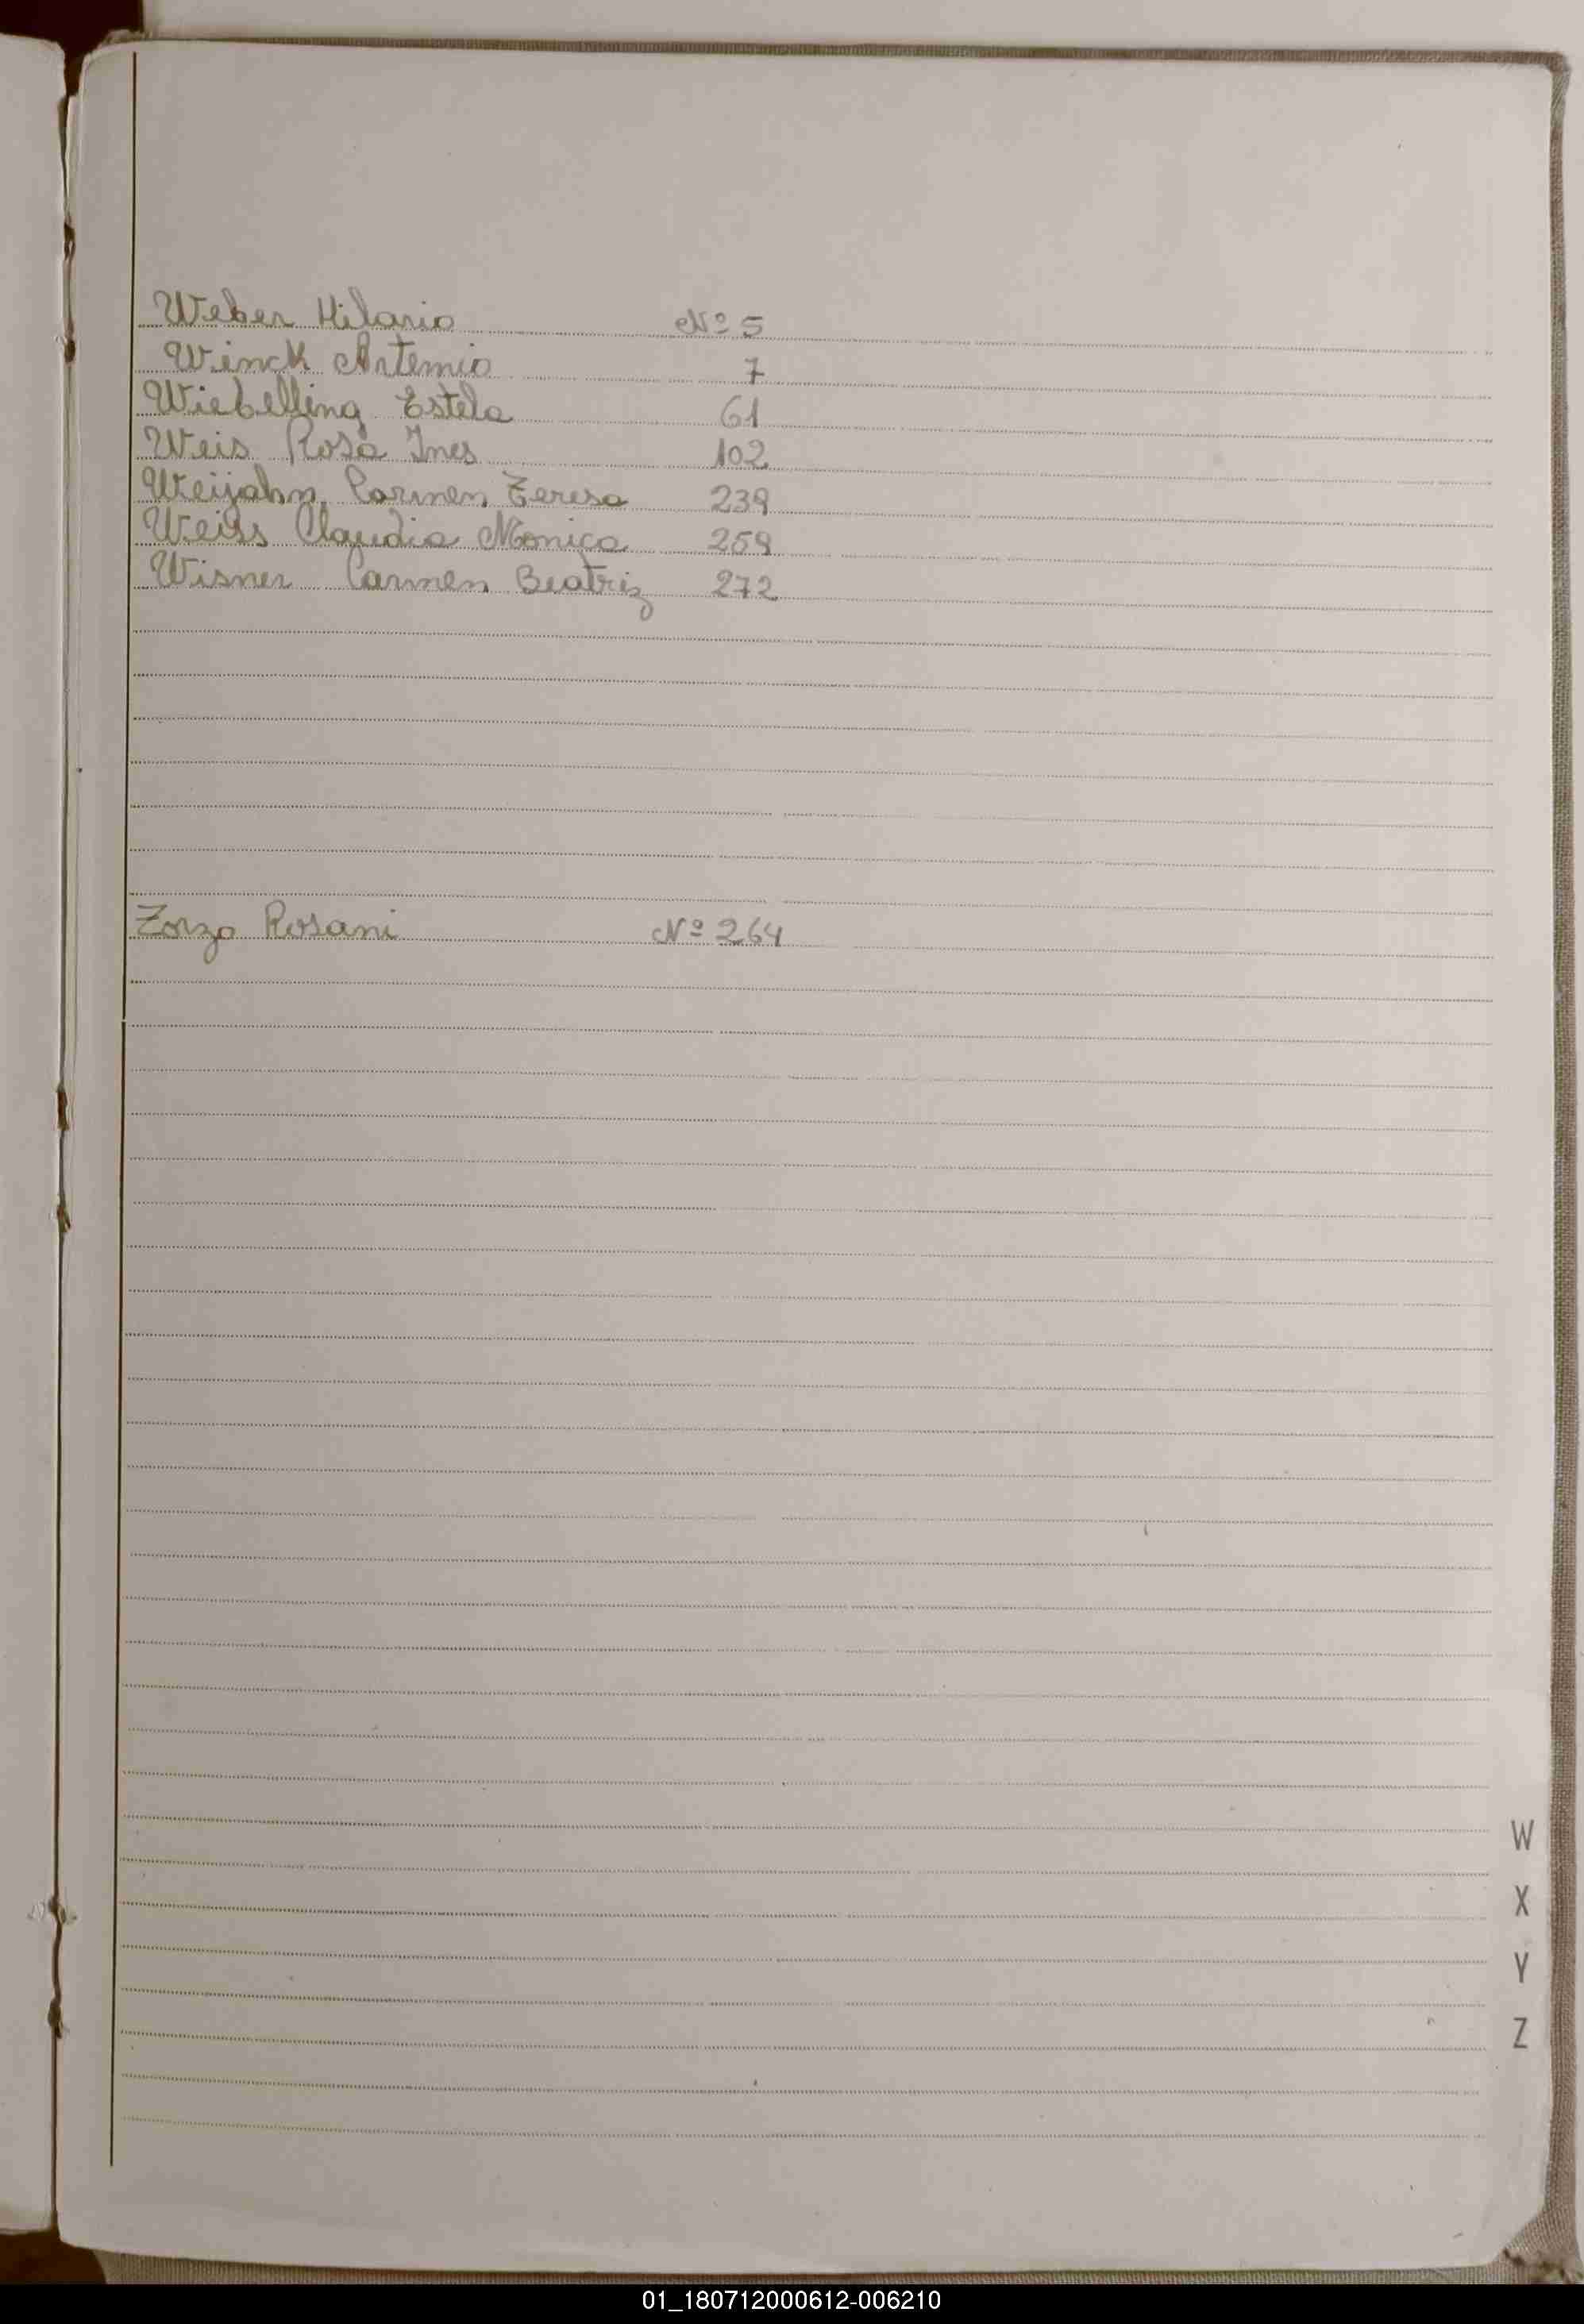 Weber Hilario Nº 5
Winck Artemio 7
Wiebelling Estela 61
Weis Rosa Ines 102
Weijahn Carmen Teresa 239
Weiss Claudia Monica 259
Wisner Carmen Beatriz 272
Zorzo Rosani Nº 264
W
X
Y
Z
01_180712000612-006210